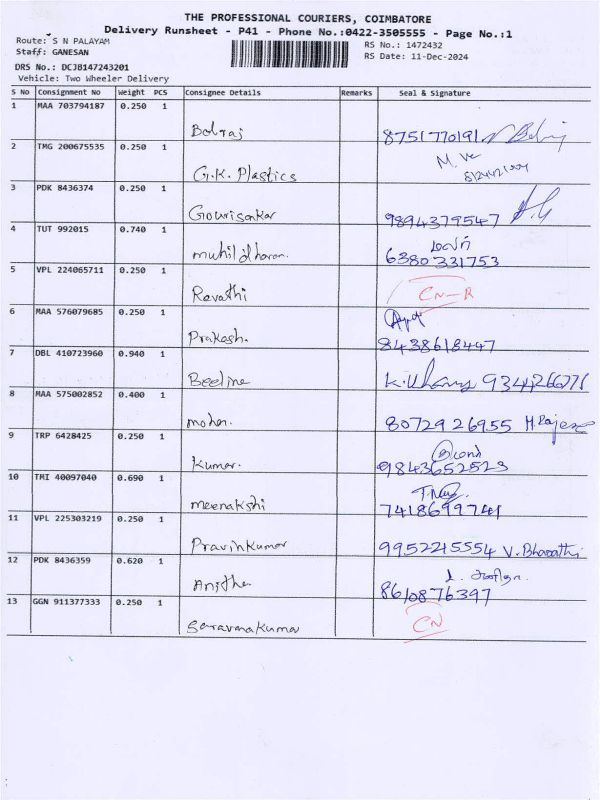 THE PROFESSIONAL COURIERS, COIMBATORE
Delivery Runsheet - P41 - Phone No.:0422-3505555 - Page No.:1
Route: S N PALAYAM
Staff: GANESAN
RS No.: 1472432
RS Date: 11-Dec-2024
DRS No.: DCJB147243201
Vehicle: Two Wheeler Delivery
S No Consignment No Weight PCS Consignee Details Remarks Seal & Signature
1 MAA 703794187 0.250 1
Bolraj 8751770191
2 TMG 200675535 0.250 1
G.K. Plastics
3 PDK 8436374 0.250 1
Gourisankar 9894379547
4 TUT 992015 0.740 1
muhildharan. 6380331753
5 VPL 224065711 0.250 1
Revathi CN-R
6 MAA 576079685 0.250 1
Prakash. 8438618447
7 DBL 410723960 0.940 1
Beeline
8 MAA 575002852 0.400 1
mohan. 80729 26955
9 TRP 6428425 0.250 1
Kumar. 9843652523
10 TMI 40097040 0.690 1
meenakshi 7418699741
11 VPL 225303219 0.250 1
Pravinkumar 9952215554 V. Bharathi
12 PDK 8436359 0.620 1
Anitha 8610876397
13 GGN 911377333 0.250 1
Saravanakumar CN